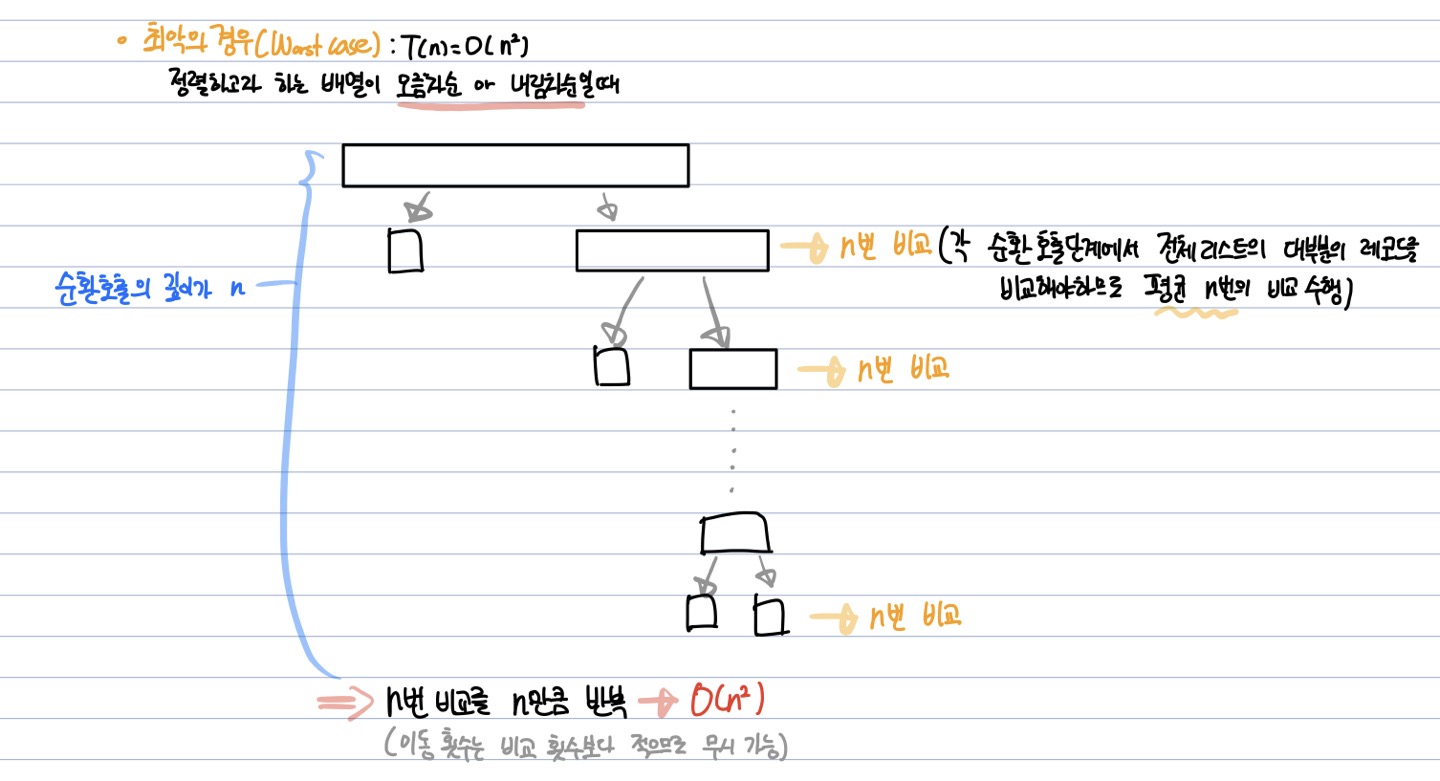 • 최악의 경우(Worst case) : T(n)=O(n²)
정렬하고자 하는 배열이 오름차순 or 내림차순일때
n번 비교 (각 순환호출단계에서 전체리스트의 대부분의 레코드를
비교해야하므로 평균 n번의 비교 수행)
순환호출의 깊이가 n
n번 비교
n번 비교
⇒ n번 비교를 n만큼 반복 → O(n²)
(이동 횟수는 비교 횟수보다 적으므로 무시 가능)